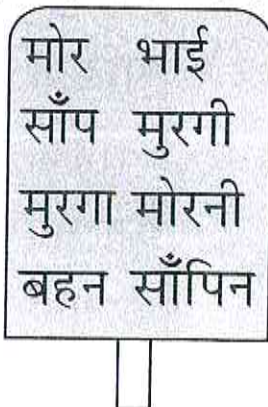 मोर भाई
साँप मुरगी
मुरगा मोरनी
बहन साँपिन